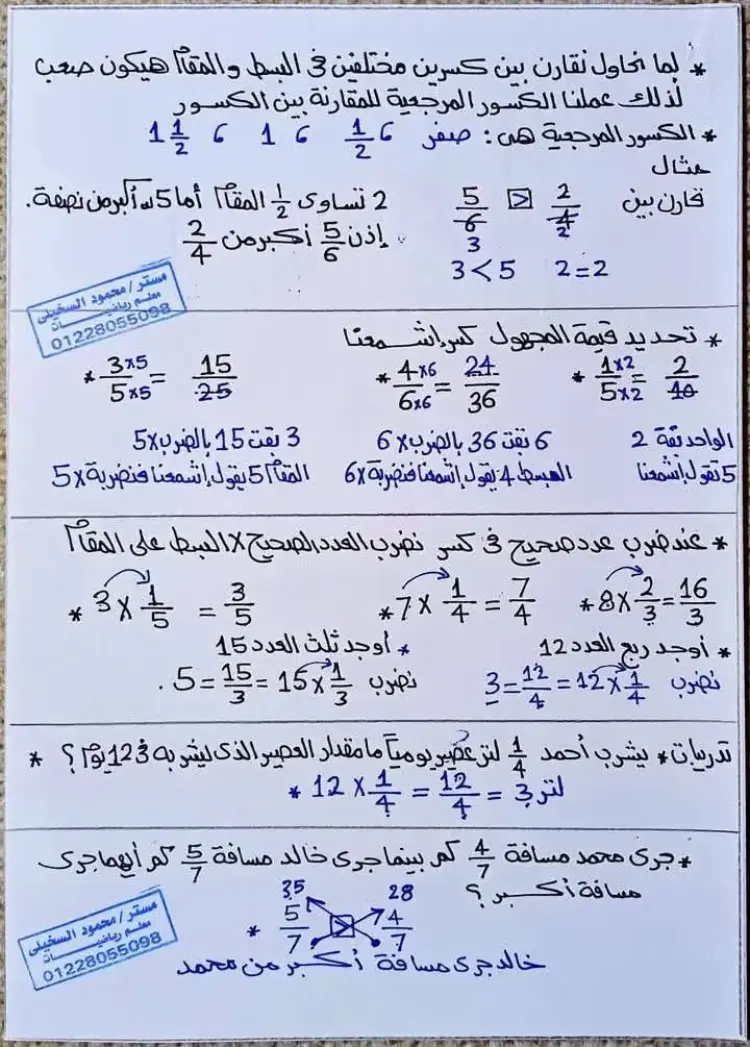 * لما نحاول نقارن بين كسرين مختلفين في البسط والمقام هيكون صعب
لذلك عملنا الكسور المرجعية للمقارنة بين الكسور
* الكسور المرجعية هى: صفر ، 1/2 ، 1 ، 1 1/2
مثال
قارن بين 2/4 < 5/6 2 تساوى 1/2 المقام أما 5 أكبر من نصفة.
2 3
∴ إذن 5/6 أكبر من 2/4
2=2 3<5
مستر / محمود السخيلى
معلم رياضيـــات
01228055098
* تحديد قيمة المجهول كس إشمعنا
* 1×2/5×2 = 2/10 * 4×6/6×6 = 24/36 * 3×5/5×5 = 15/25
الواحد بقة 2 6 بقت 36 بالضرب×6 3 بقت 15 بالضرب×5
5 تقول إشمعنا البسط 4 يقول إشمعنا فنضربة×6 المقام 5 يقول إشمعنا فنضربة×5
* عند ضرب عدد صحيح في كسر نضرب العدد الصحيح × البسط على المقام
* 8×2/3=16/3 * 7×1/4=7/4 * 3×1/5=3/5
* أوجد ربع العدد 12 * أوجد ثلث العدد 15
نضرب 3=12/4=12×1/4 نضرب 5=15/3=15×1/3.
تدريبات * يشرب أحمد 1/4 لتر عصير يومياً ما مقدار العصير الذى يشربه في 12 يوم ؟ *
* 12×1/4=12/4=3 لتر
* جرى محمد مسافة 4/7 كم بينما جرى خالد مسافة 5/7 كم أيهما جرى
مسافة أكبر ؟
35 28
* 5/7 > 4/7
خالد جرى مسافة أكبر من محمد
مستر / محمود السخيلى
معلم رياضيـــات
01228055098